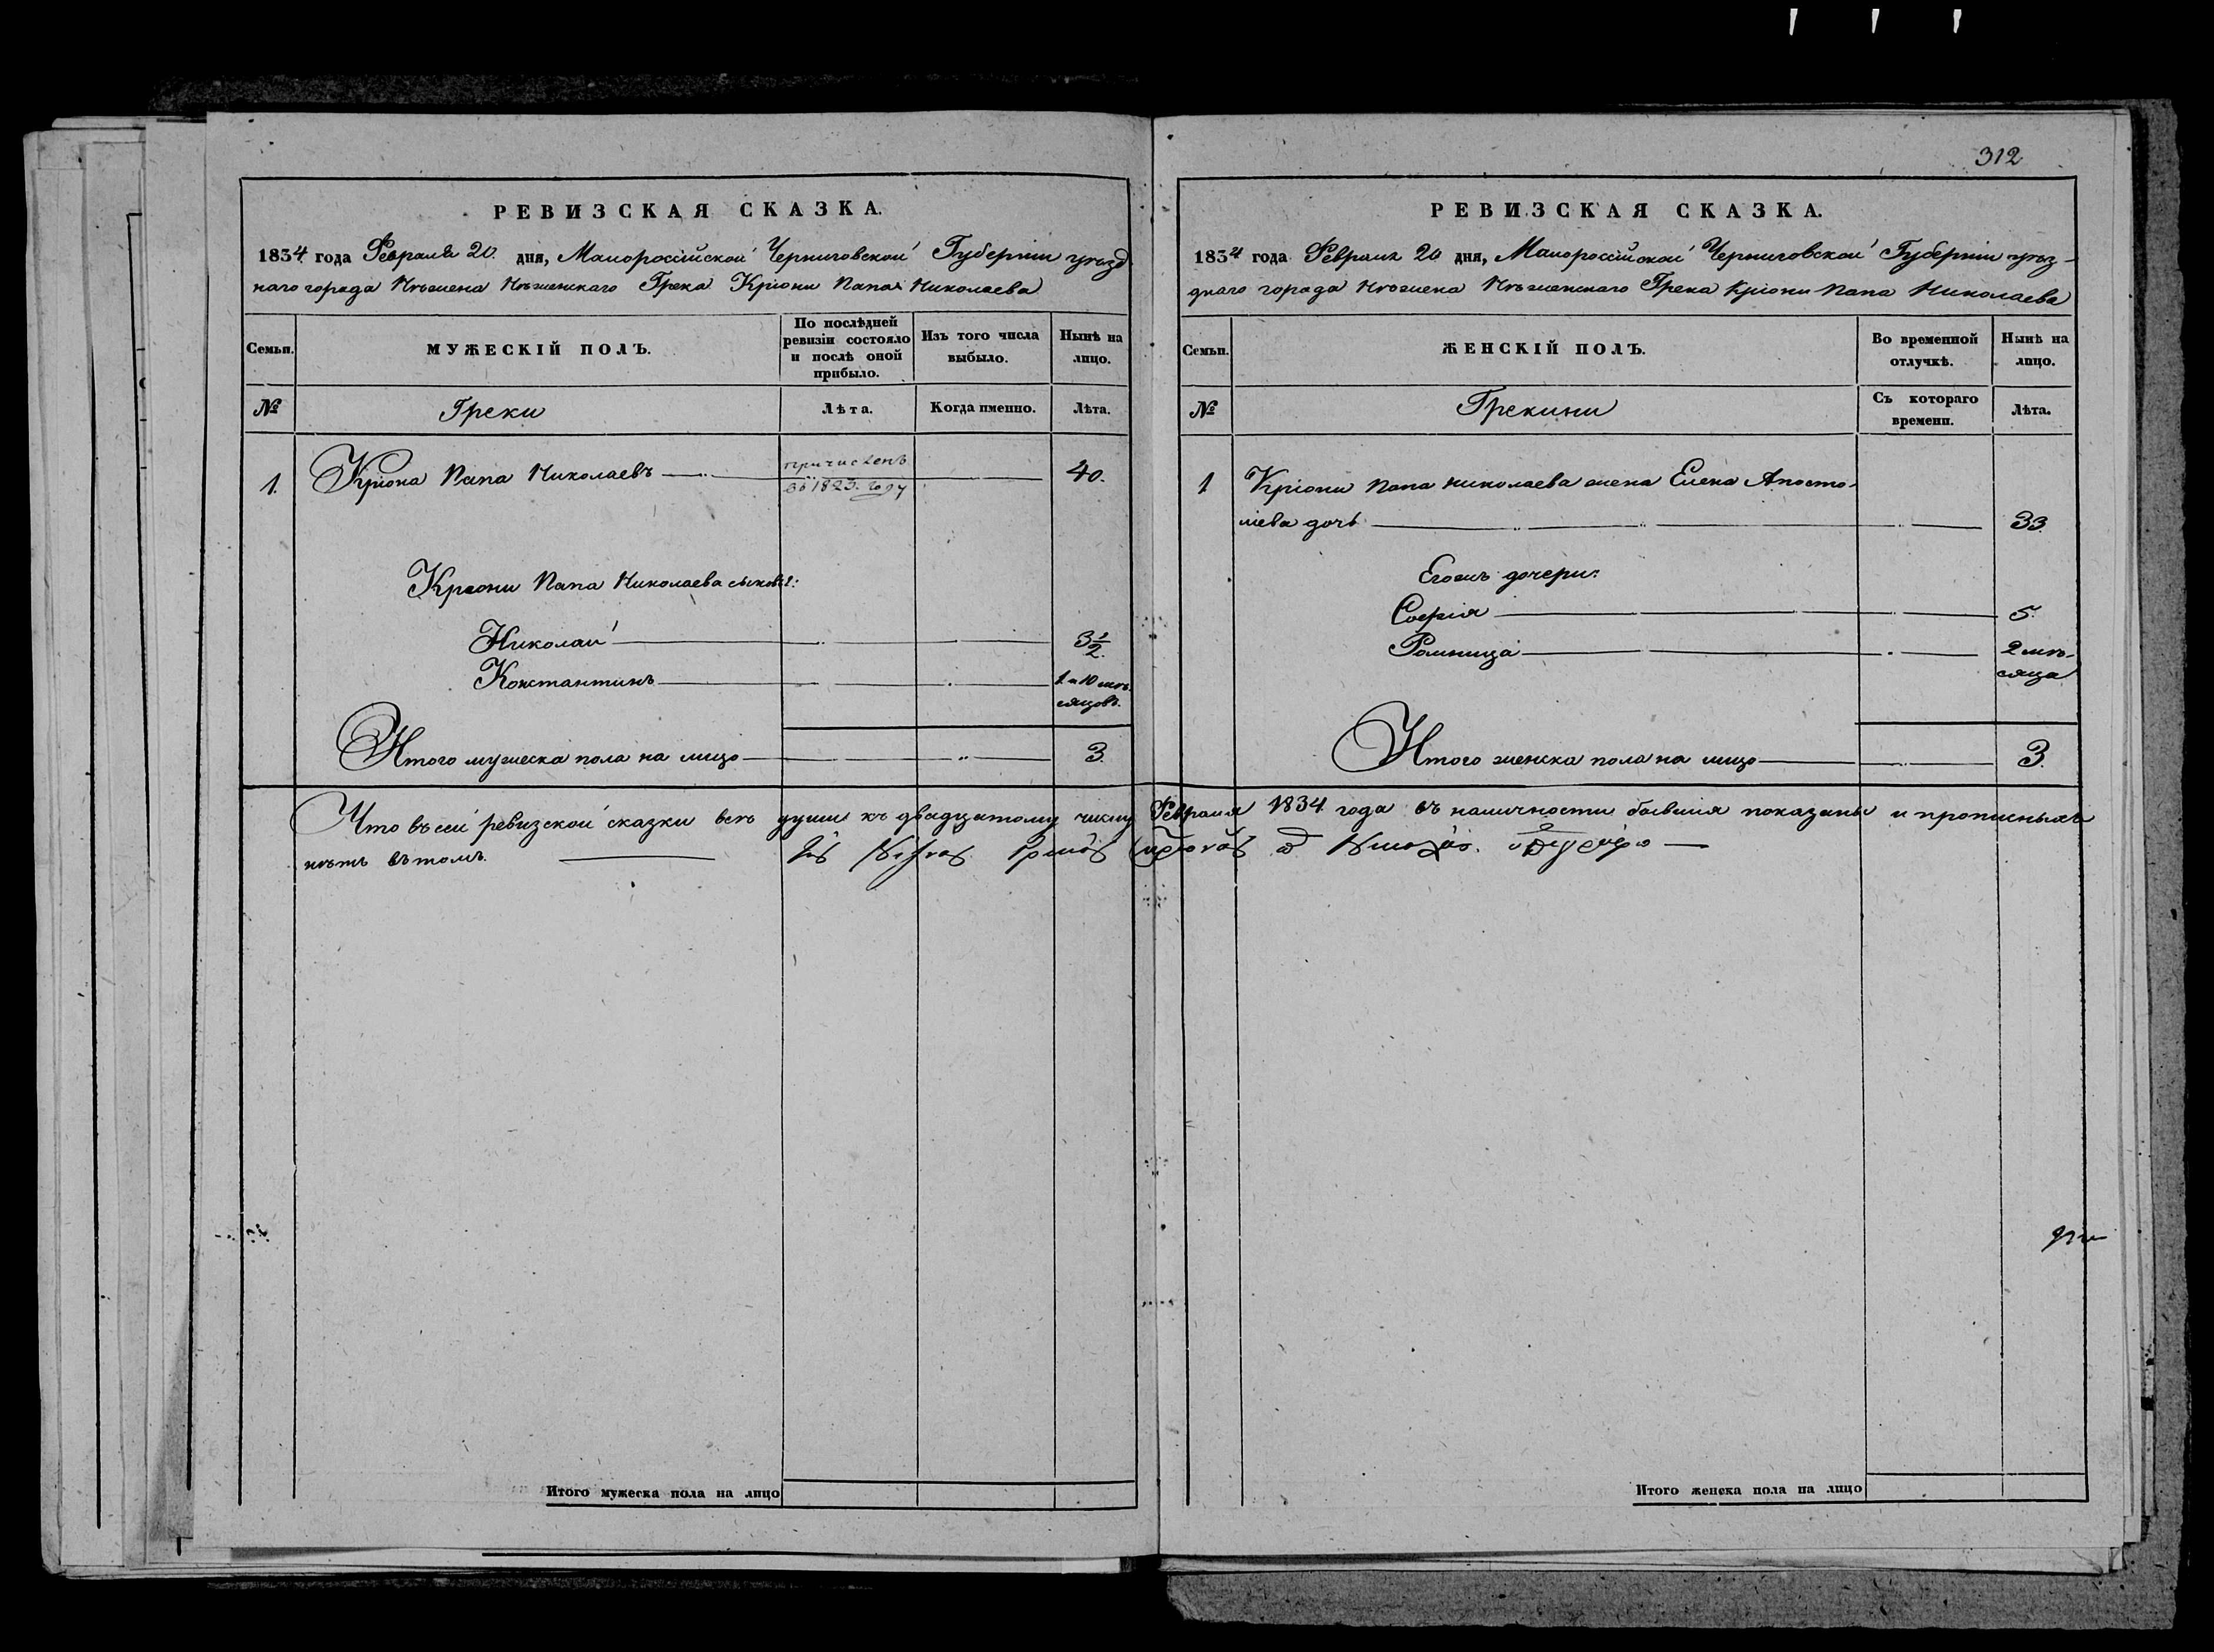 312
РЕВИЗСКАЯ СКАЗКА.
1834 года Февраля 20. дня, Малороссійской Черниговской Губерніи уѣзд
наго города Нѣжена Нѣженскаго Грека Кріони Папа Николаева
Семьи.
МУЖЕСКІЙ ПОЛЪ.
По послѣдней
ревизіи состояло
и послѣ оной
прибыло.
Изъ того числа
выбыло.
Нынѣ на
лицо.
№
Греки
Лѣта.
Когда именно.
Лѣта.
1. Кріона Папа Николаевъ 40.
причисленъ
въ 1823. году
Кріони Папа Николаева сыновья:
Николай 3½.
Константинъ 1 и 10 мѣ-
сяцовъ.
Итого мужеска пола на лицо 3.
РЕВИЗСКАЯ СКАЗКА.
1834 года Февраля 20 дня, Малороссійской Черниговской Губерніи уѣз-
днаго города Нѣжена Нѣженскаго Грека Кріони Папа Николаева
Семьи.
ЖЕНСКІЙ ПОЛЪ.
Во временной
отлучкѣ.
Нынѣ на
лицо.
№
Грекини
Съ котораго
времени.
Лѣта.
1 Кріони Папа Николаева жена Елена Апосто-
лева дочь 33.
Егожъ дочери:
Софія 5.
Рамница 2 мѣ-
сяца
Итого женска пола на лицо 3.
Что въ сей ревизской сказки всѣ души къ двадцатому числу Февраля 1834 года въ наличности бывшія показаны и прописныхъ
нѣтъ вътомъ.
Итого мужеска пола на лицо
Итого женска пола на лицо